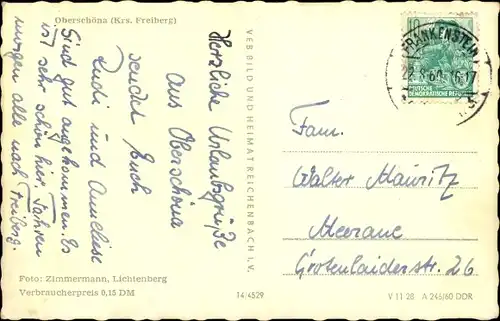 Oberschöna (Krs. Freiberg)
Herzliche Urlaubsgrüße
aus Oberschöna
sendet Euch
Rudi und Anneliese
Sind gut angekommen. Es
ist sehr schön hier. Fahren
morgen alle nach Freiberg.
Foto: Zimmermann, Lichtenberg
Verbraucherpreis 0,15 DM
VEB BILD UND HEIMAT REICHENBACH I. V.
14/4529
10
FRANKENSTEIN
60.-16.17
DEUTSCHE
DEMOKRATISCHE REPUBLIK
Fam.
Walter Mauritz
Meerane
Crotenlaiderstr. 26
V 11 28 A 245/60 DDR